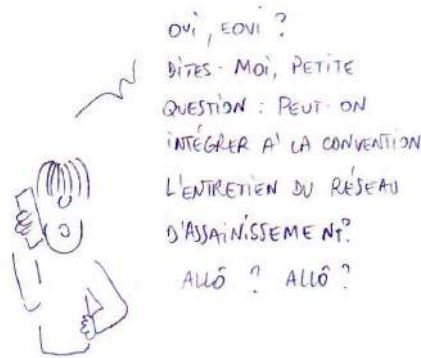 OUI, EOVI ?
DITES-MOI, PETITE
QUESTION : PEUT-ON
INTÉGRER À LA CONVENTION
L'ENTRETIEN DU RÉSEAU
D'ASSAINISSEMENT?
ALLÔ ? ALLÔ ?